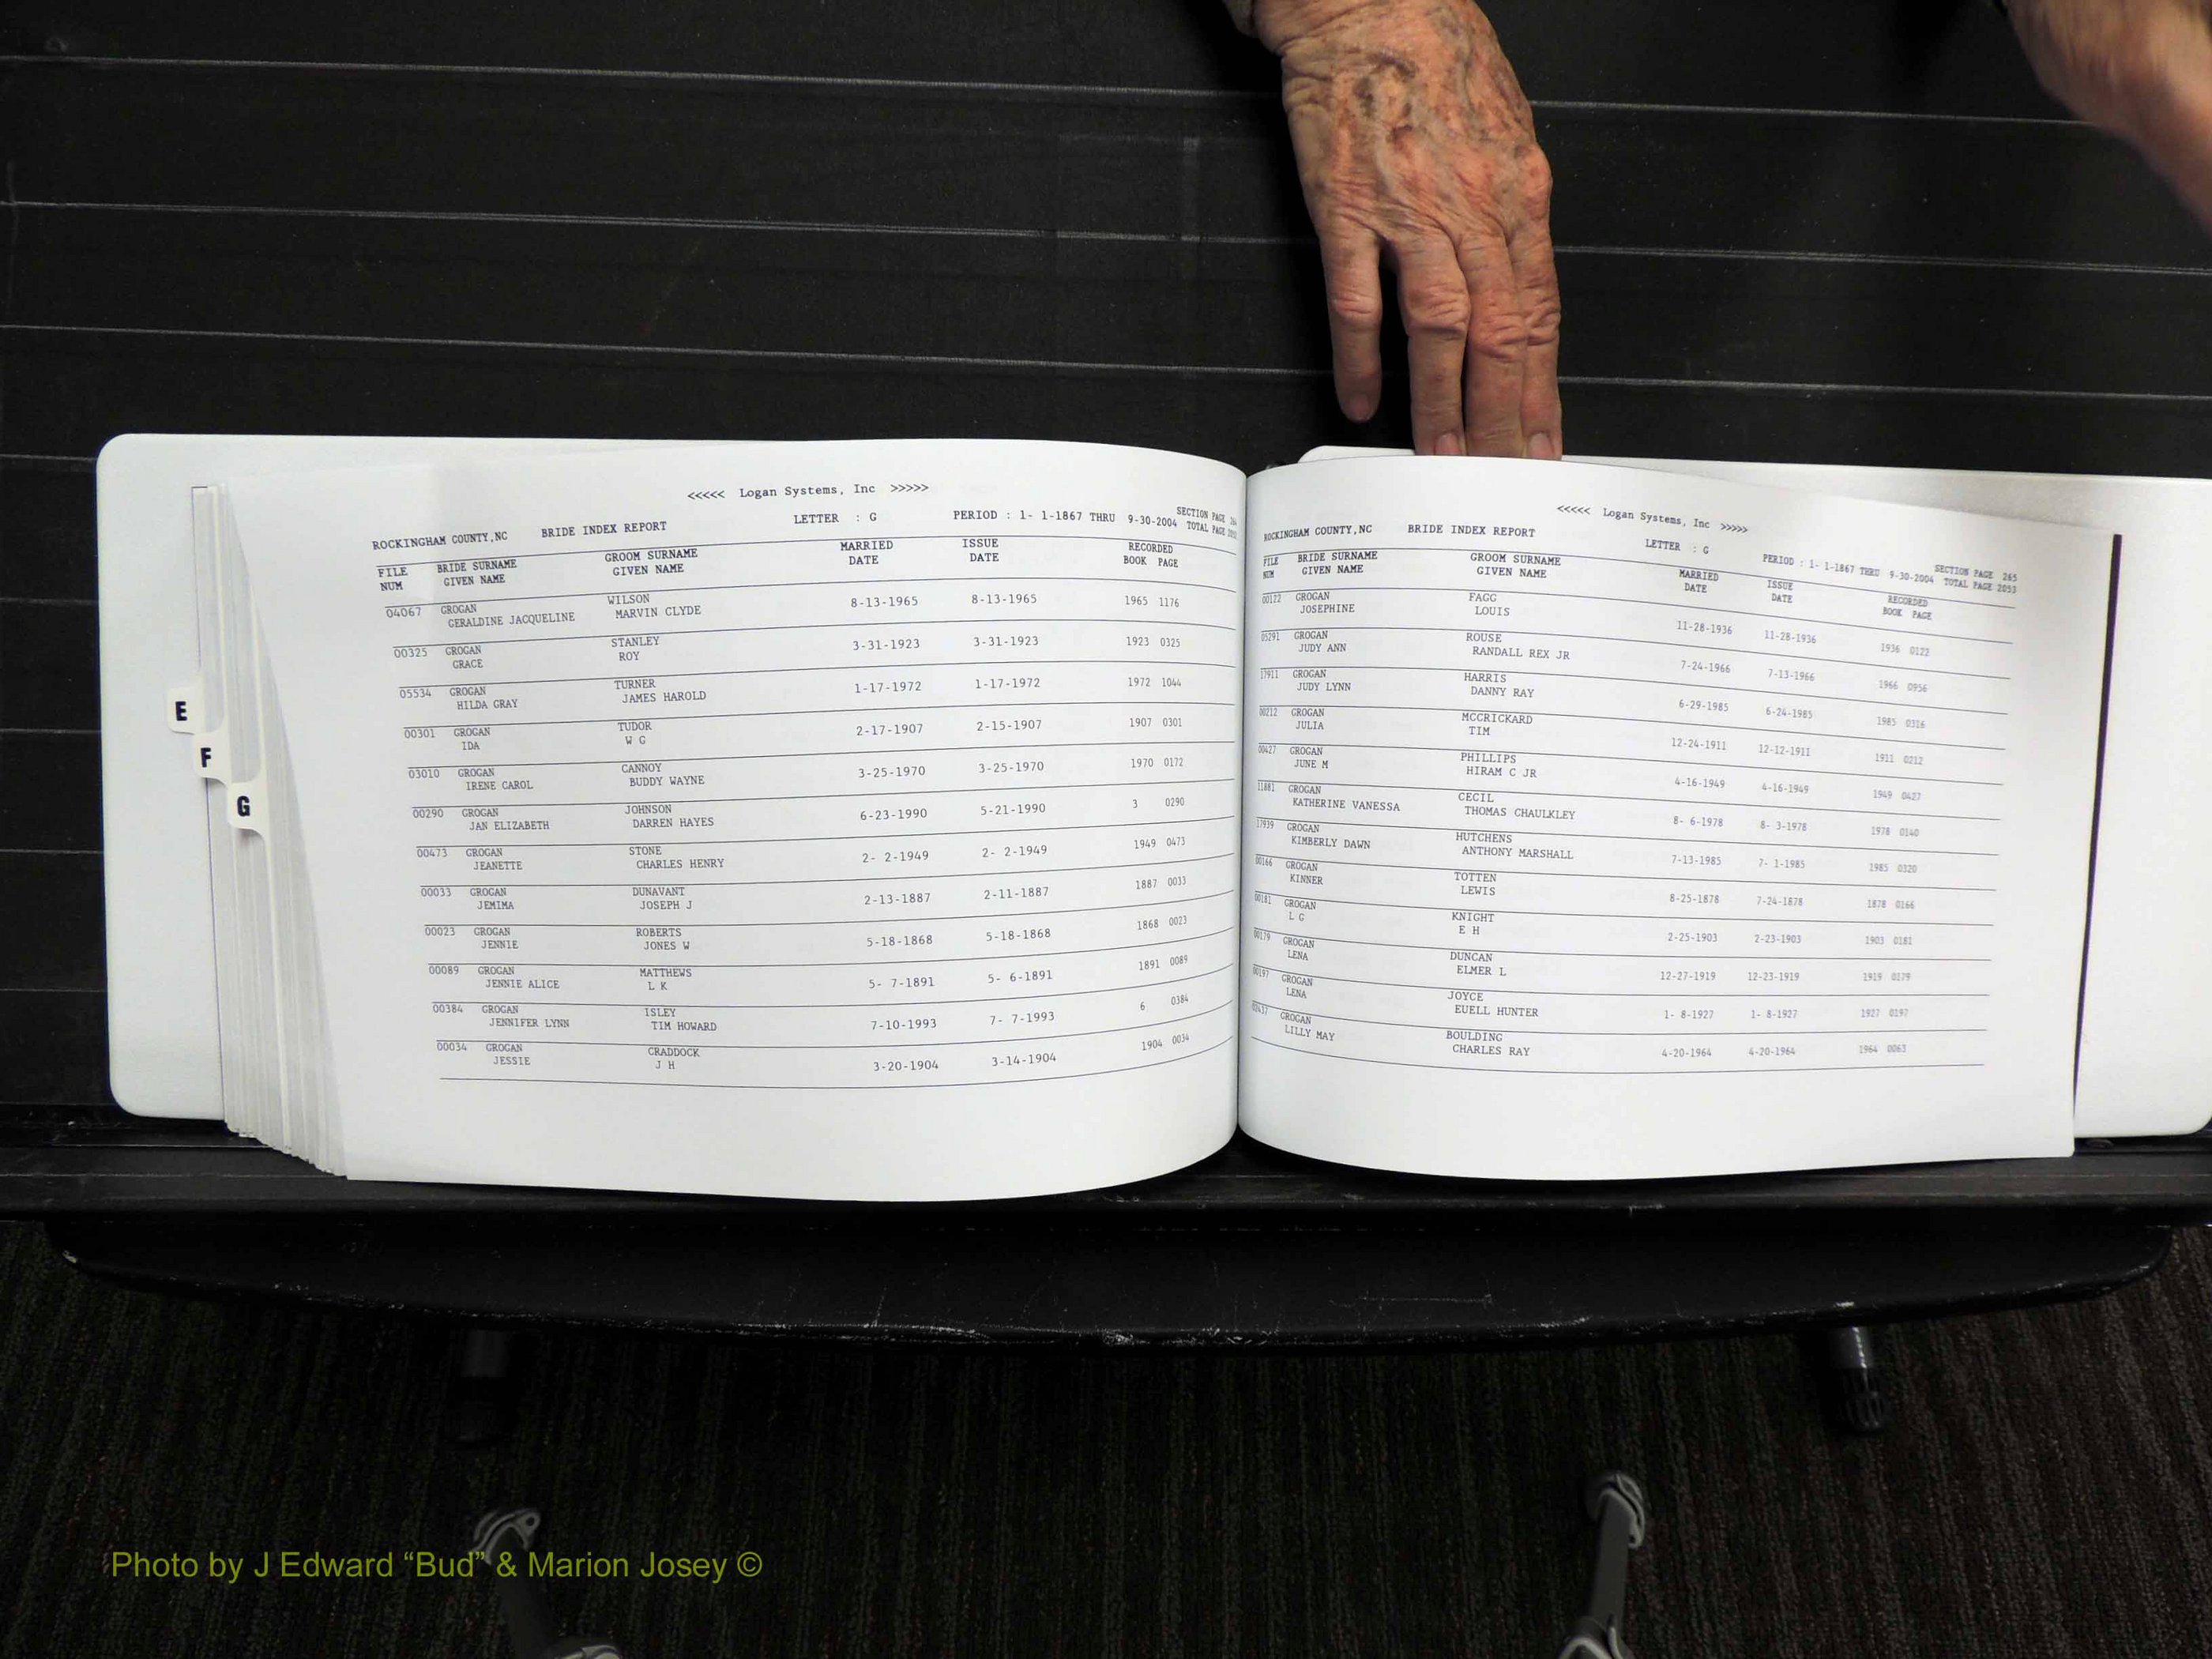 E
F
G
<<<<< Logan Systems, Inc >>>>>
ROCKINGHAM COUNTY,NC BRIDE INDEX REPORT LETTER : G PERIOD : 1- 1-1867 THRU 9-30-2004 SECTION PAGE
TOTAL PAGE
FILE BRIDE SURNAME GROOM SURNAME MARRIED ISSUE RECORDED
NUM GIVEN NAME GIVEN NAME DATE DATE BOOK PAGE
04067 GROGAN WILSON 8-13-1965 8-13-1965 1965 1176
GERALDINE JACQUELINE MARVIN CLYDE
00325 GROGAN STANLEY 3-31-1923 3-31-1923 1923 0325
GRACE ROY
05534 GROGAN TURNER 1-17-1972 1-17-1972 1972 1044
HILDA GRAY JAMES HAROLD
00301 GROGAN TUDOR 2-17-1907 2-15-1907 1907 0301
IDA W G
03010 GROGAN CANNOY 3-25-1970 3-25-1970 1970 0172
IRENE CAROL BUDDY WAYNE
00290 GROGAN JOHNSON 6-23-1990 5-21-1990 3 0290
JAN ELIZABETH DARREN HAYES
00473 GROGAN STONE 2- 2-1949 2- 2-1949 1949 0473
JEANETTE CHARLES HENRY
00033 GROGAN DUNAVANT 2-13-1887 2-11-1887 1887 0033
JEMIMA JOSEPH J
00023 GROGAN ROBERTS 5-18-1868 5-18-1868 1868 0023
JENNIE JONES W
00089 GROGAN MATTHEWS 5- 7-1891 5- 6-1891 1891 0089
JENNIE ALICE L K
00384 GROGAN ISLEY 7-10-1993 7- 7-1993 6 0384
JENNIFER LYNN TIM HOWARD
00034 GROGAN CRADDOCK 3-20-1904 3-14-1904 1904 0034
JESSIE J H
<<<<< Logan Systems, Inc >>>>>
ROCKINGHAM COUNTY,NC BRIDE INDEX REPORT LETTER : G PERIOD : 1- 1-1867 THRU 9-30-2004 SECTION PAGE 265
TOTAL PAGE 2053
FILE BRIDE SURNAME GROOM SURNAME MARRIED ISSUE RECORDED
NUM GIVEN NAME GIVEN NAME DATE DATE BOOK PAGE
00122 GROGAN FAGG 11-28-1936 11-28-1936 1936 0122
JOSEPHINE LOUIS
05291 GROGAN ROUSE 7-24-1966 7-13-1966 1966 0956
JUDY ANN RANDALL REX JR
17911 GROGAN HARRIS 6-29-1985 6-24-1985 1985 0316
JUDY LYNN DANNY RAY
00212 GROGAN MCCRICKARD 12-24-1911 12-12-1911 1911 0212
JULIA TIM
00427 GROGAN PHILLIPS 4-16-1949 4-16-1949 1949 0427
JUNE M HIRAM C JR
11881 GROGAN CECIL 8- 6-1978 8- 3-1978 1978 0340
KATHERINE VANESSA THOMAS CHAULKLEY
17939 GROGAN HUTCHENS 7-13-1985 7- 1-1985 1985 0320
KIMBERLY DAWN ANTHONY MARSHALL
00166 GROGAN TOTTEN 8-25-1878 7-24-1878 1878 0166
KINNER LEWIS
00181 GROGAN KNIGHT 2-25-1903 2-23-1903 1903 0181
L G E H
00179 GROGAN DUNCAN 12-27-1919 12-23-1919 1919 0179
LENA ELMER L
00197 GROGAN JOYCE 1- 8-1927 1- 8-1927 1927 0197
LENA EUELL HUNTER
GROGAN BOULDING 4-20-1964 4-20-1964 1964 0063
LILLY MAY CHARLES RAY
Photo by J Edward “Bud” & Marion Josey ©